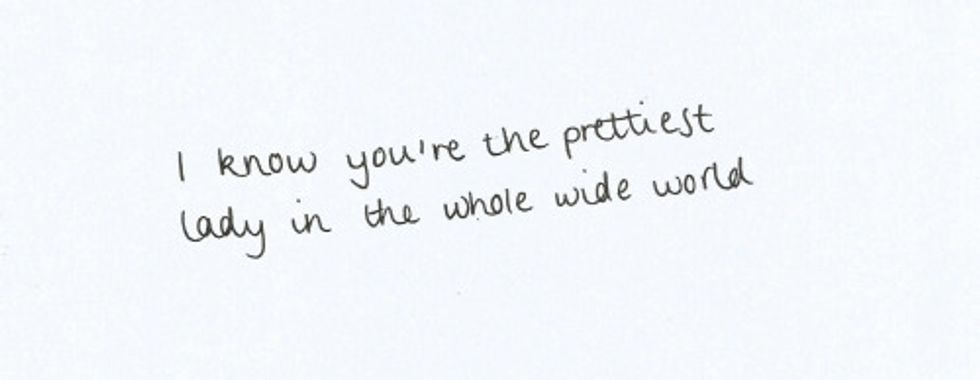 I know you're the prettiest
lady in the whole wide world